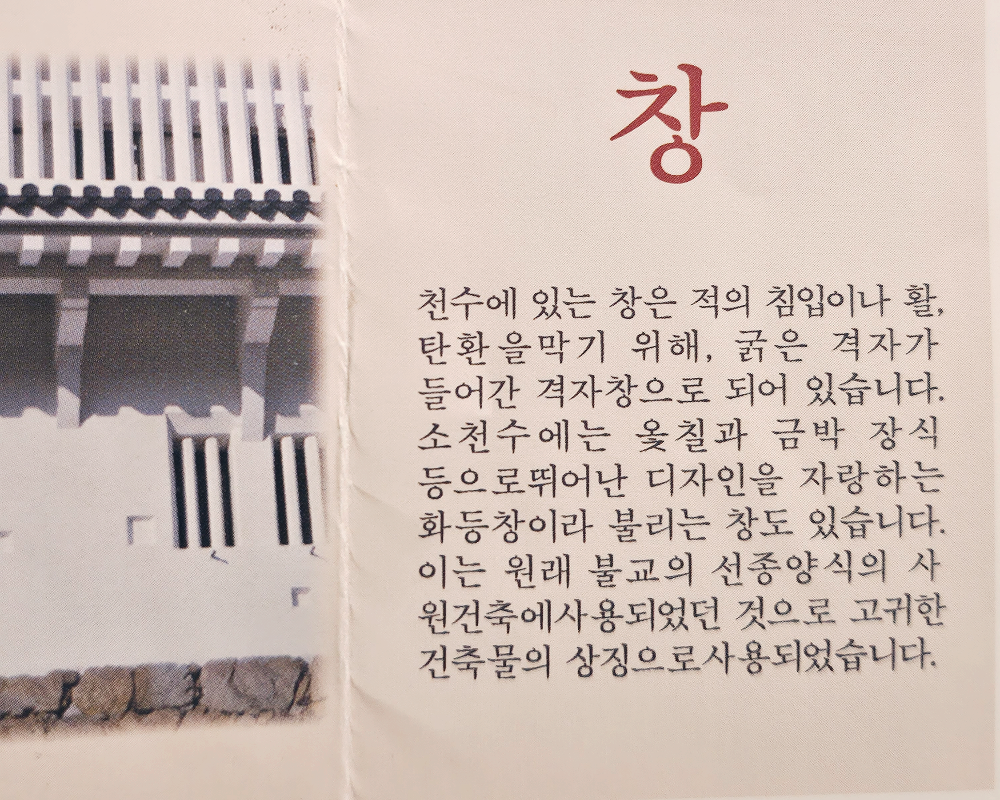 창
천수에 있는 창은 적의 침입이나 활,
탄환을막기 위해, 굵은 격자가
들어간 격자창으로 되어 있습니다.
소천수에는 옻칠과 금박 장식
등으로뛰어난 디자인을 자랑하는
화등창이라 불리는 창도 있습니다.
이는 원래 불교의 선종양식의 사
원건축에사용되었던 것으로 고귀한
건축물의 상징으로사용되었습니다.